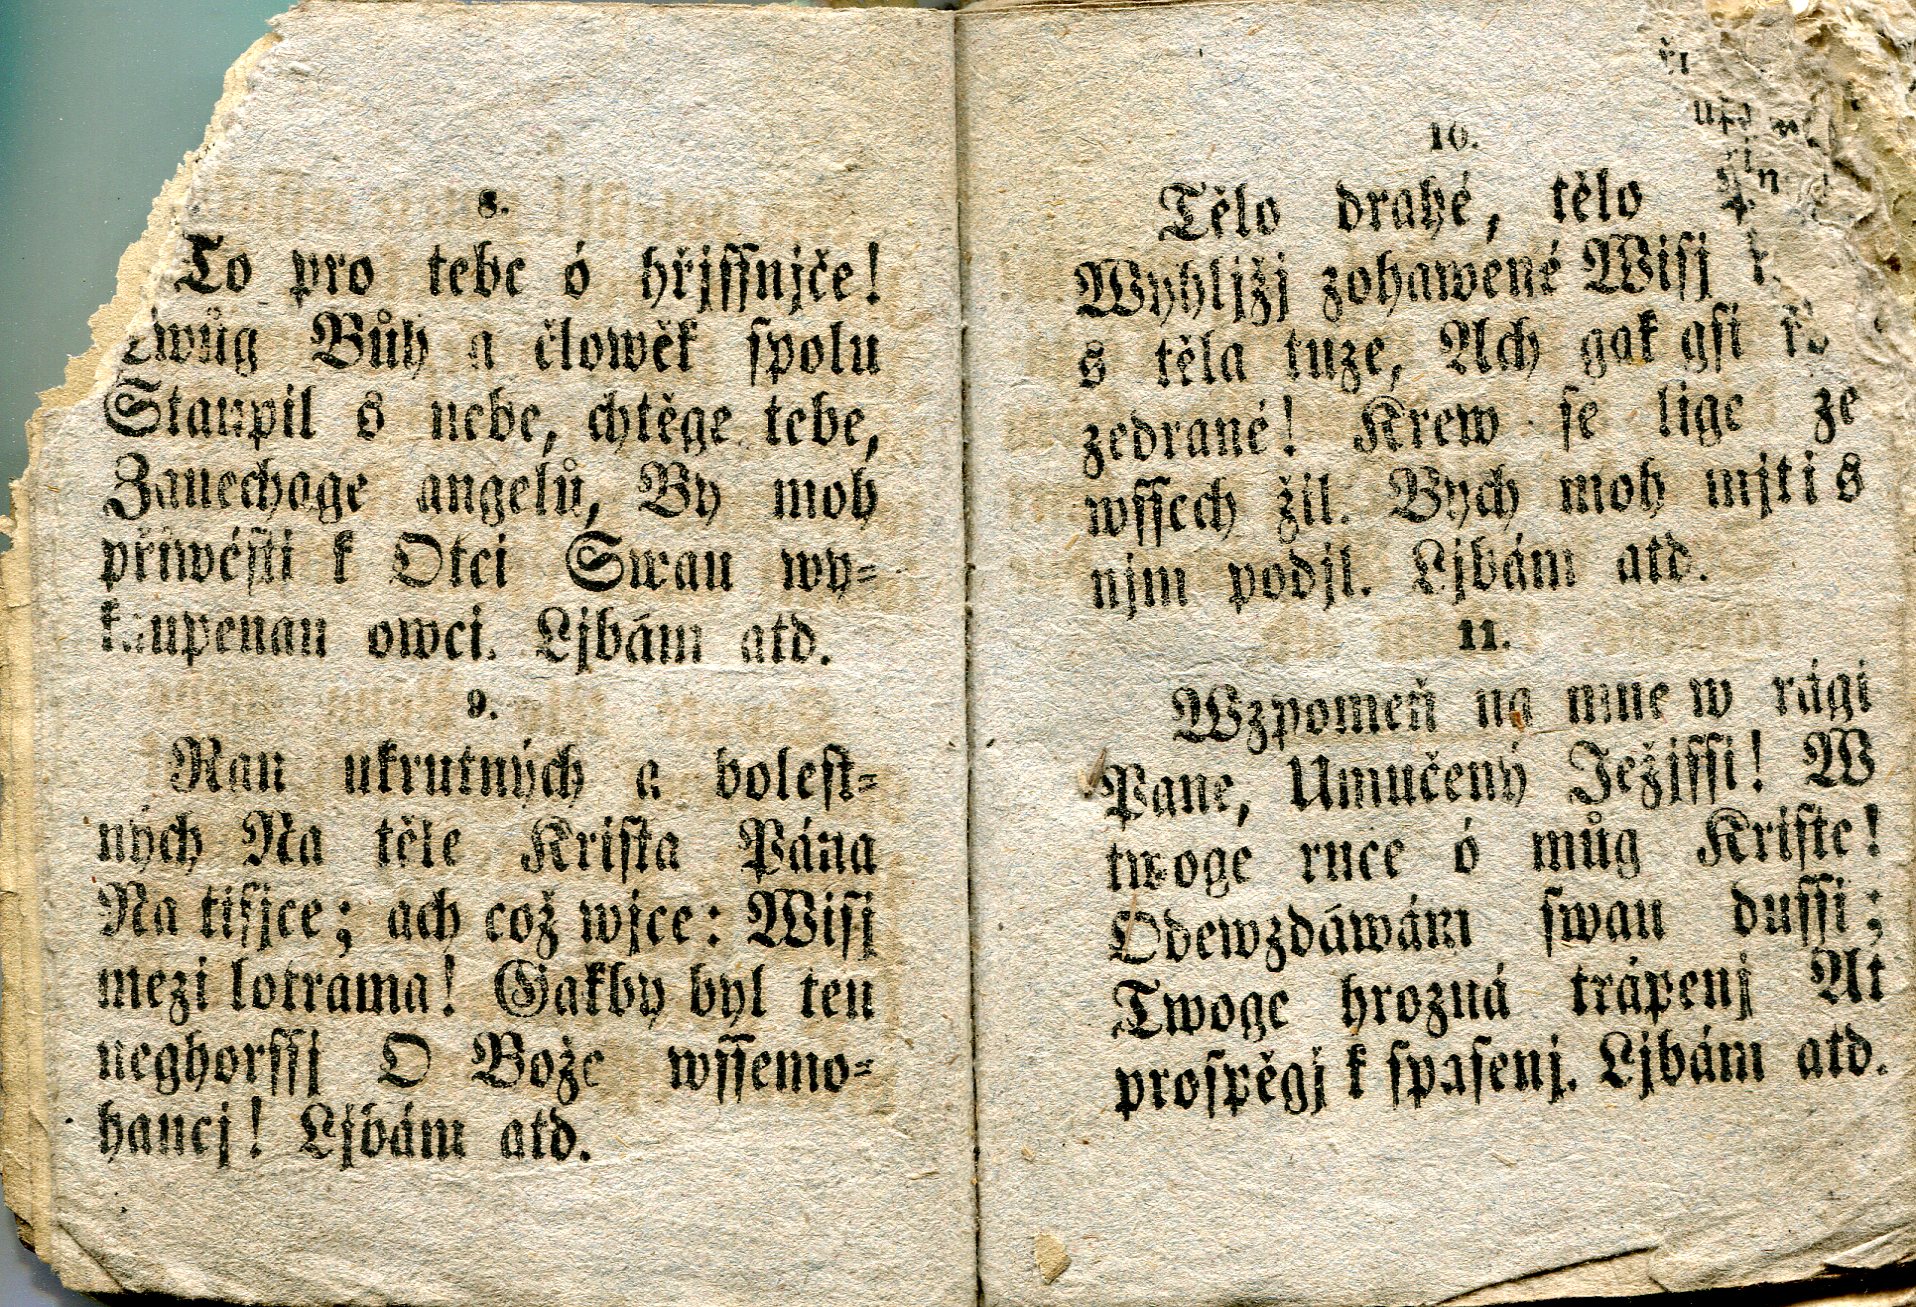 8.
To pro tebe ó hřjssnjče!
Twůg Bůh a člowěk spolu
Staupil s nebe, chtěge tebe,
Zanechage angelů, By moh
přiwésti k Otci Swau wy-
kaupenau owci. Ljbám atd.
9.
Ran ukrutných a bolest-
ných Na těle Krista Pána
Na tisjce; ach což wjce: Wisj
mezi lotrama! Gakby byl ten
neghorssj O Bože wssemo-
haucj! Ljbám atd.
10.
Tělo drahé, tělo
Wyhljžj zohawené Wisj
s těla tuze, Ach gak gsi
zedrané! Krew se lige ze
wssech žil. Bych moh mjti s
njm podjl. Ljbám atd.
11.
Wzpomeň na mne w rági
Pane, Umučený Ježjssi! W
twoge ruce ó můg Kriste!
Odewzdáwám swau dussi;
Twoge hrozná trápenj At
prospěgj k spasenj. Ljbám atd.